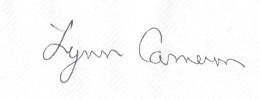 Lynn Cameron